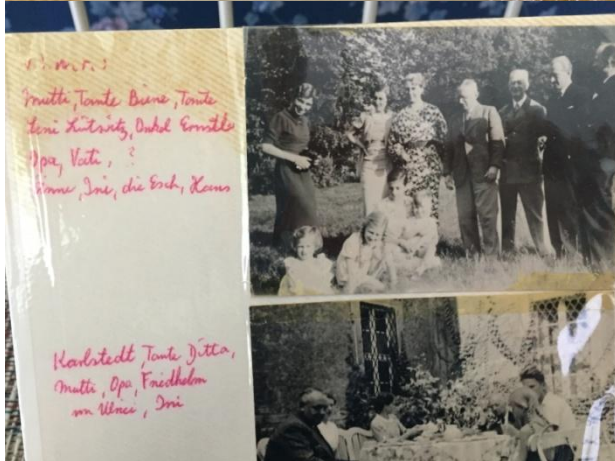 v. l. n. r. :
Mutti, Tante Biene, Tante
Leni Lütwitz, Onkel Ernstle
Opa, Vati, ?
Änne, Ini, die Esch, Hans
Karlstedt, Tante Ditta,
Mutti, Opa, Friedhelm
von Ulrici, Ini